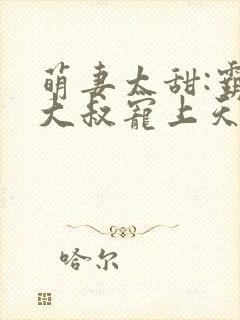 萌妻太甜:霸
大叔宠上天
哈尔